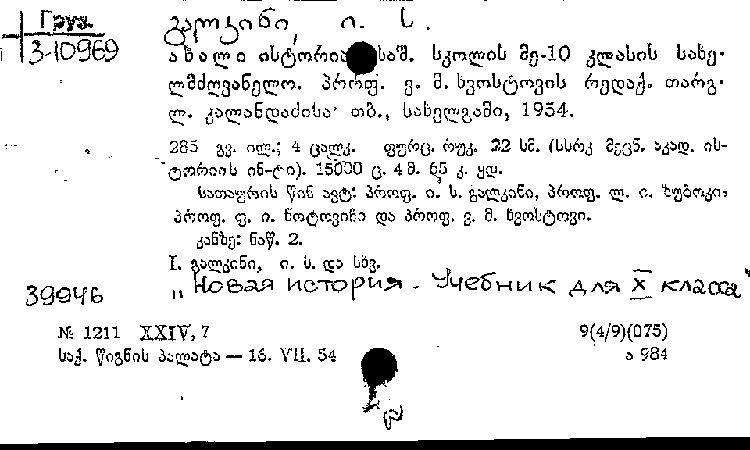 Груз.
3-10969
გალკინი, ი. ს.
ახალი ისტორია საშ. სკოლის მე-10 კლასის სახე-
ლმძღვანელო. პროფ. ვ. მ. ხვოსტოვის რედაქ. თარგ.
ლ. კალანდაძისა. თბ., სახელგამი, 1954.
285 გვ. ილ.; 4 ცალკ. ფურც. რუკ. 22 სმ. (სსრკ მეცნ. აკად. ის-
ტორიის ინ-ტი). 15000 ც. 4 მ. 65 კ. ყდ.
სათაურის წინ ავტ: პროფ. ი. ს. გალკინი, პროფ. ლ. ი. ზუბოკი,
პროფ. ფ. ი. ნოტოვიჩი და პროფ. ვ. მ. ხვოსტოვი.
კანზე: ნაწ. 2.
I. გალკინი, ი. ს. და სხვ.
39946
„Новая история. Учебник для X класса"
№ 1211 XXIV, 7
9(4/9)(075)
საქ. წიგნის პალატა — 16. VII. 54
ა 984